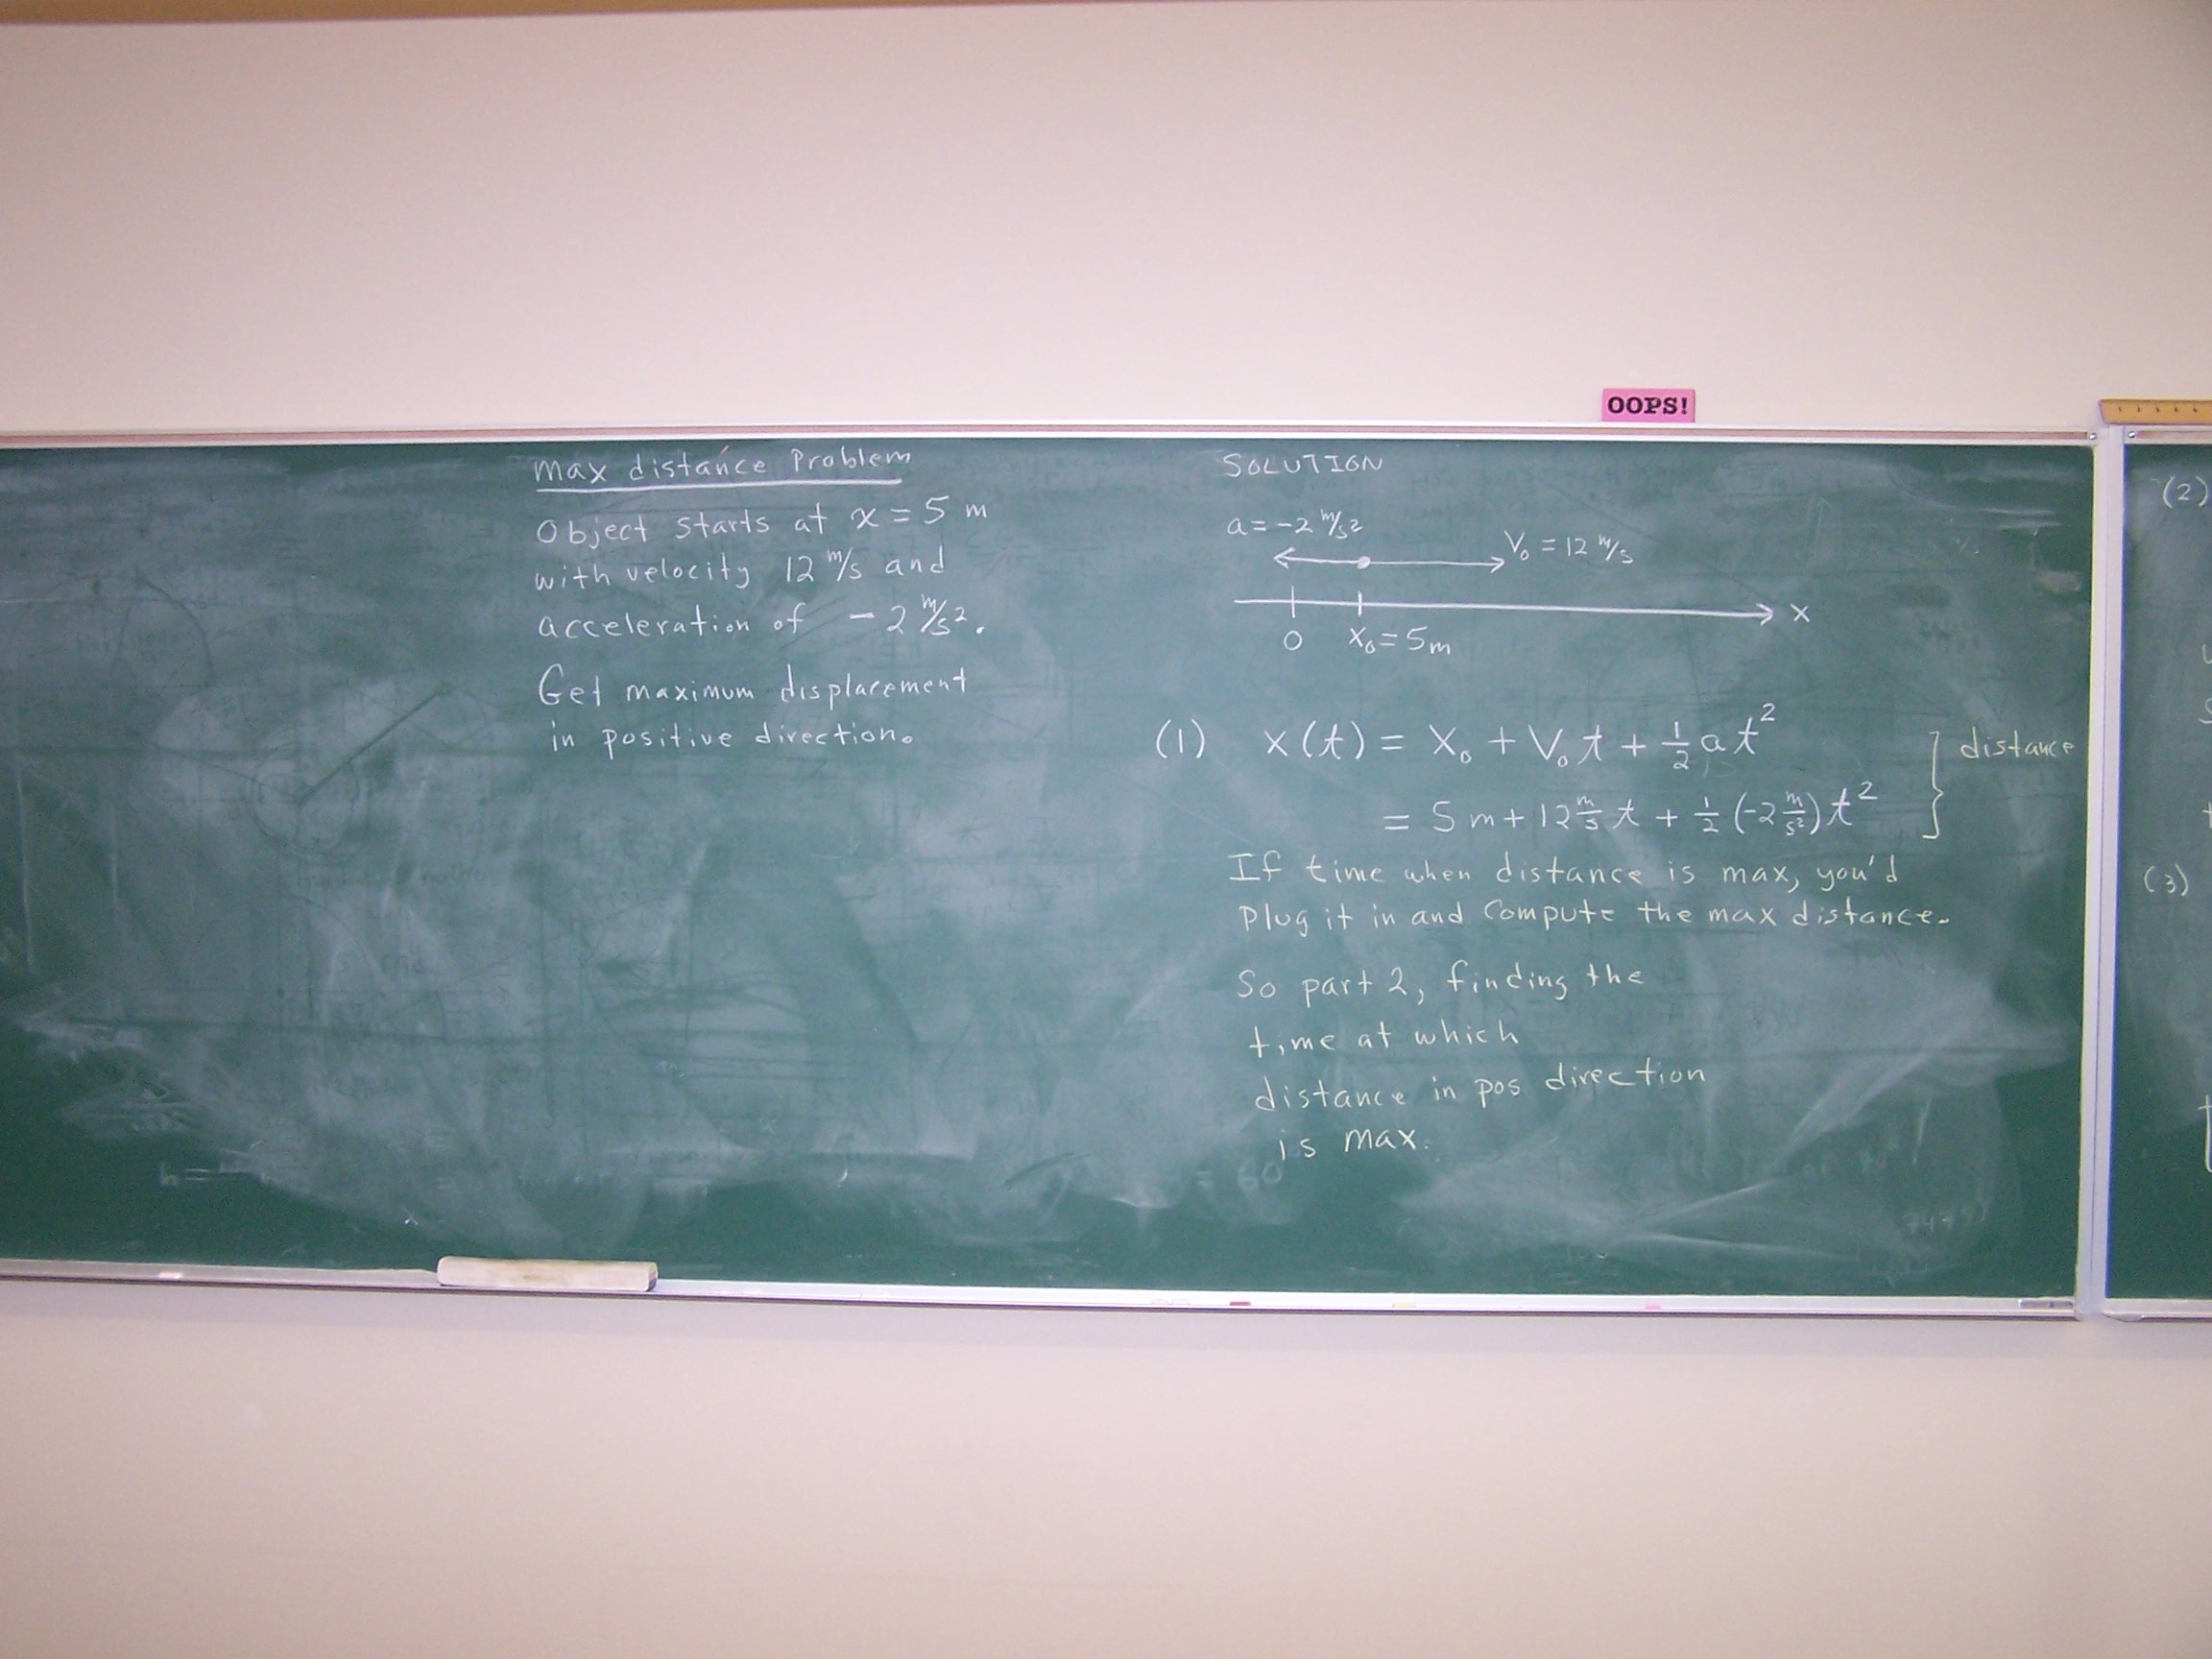 OOPS!
Max distance Problem
Object starts at x = 5 m
with velocity 12 m/s and
acceleration of - 2 m/s².
Get maximum displacement
in positive direction.
SOLUTION
a = -2 m/s²
V₀ = 12 m/s
x
0 x₀ = 5m
(1) x(t) = x₀ + V₀t + ½at²
= 5m + 12 m/s t + ½(-2 m/s²)t²
distance
If time when distance is max, you'd
plug it in and compute the max distance.
So part 2, finding the
time at which
distance in pos direction
is max.
= 60
(2)
(3)